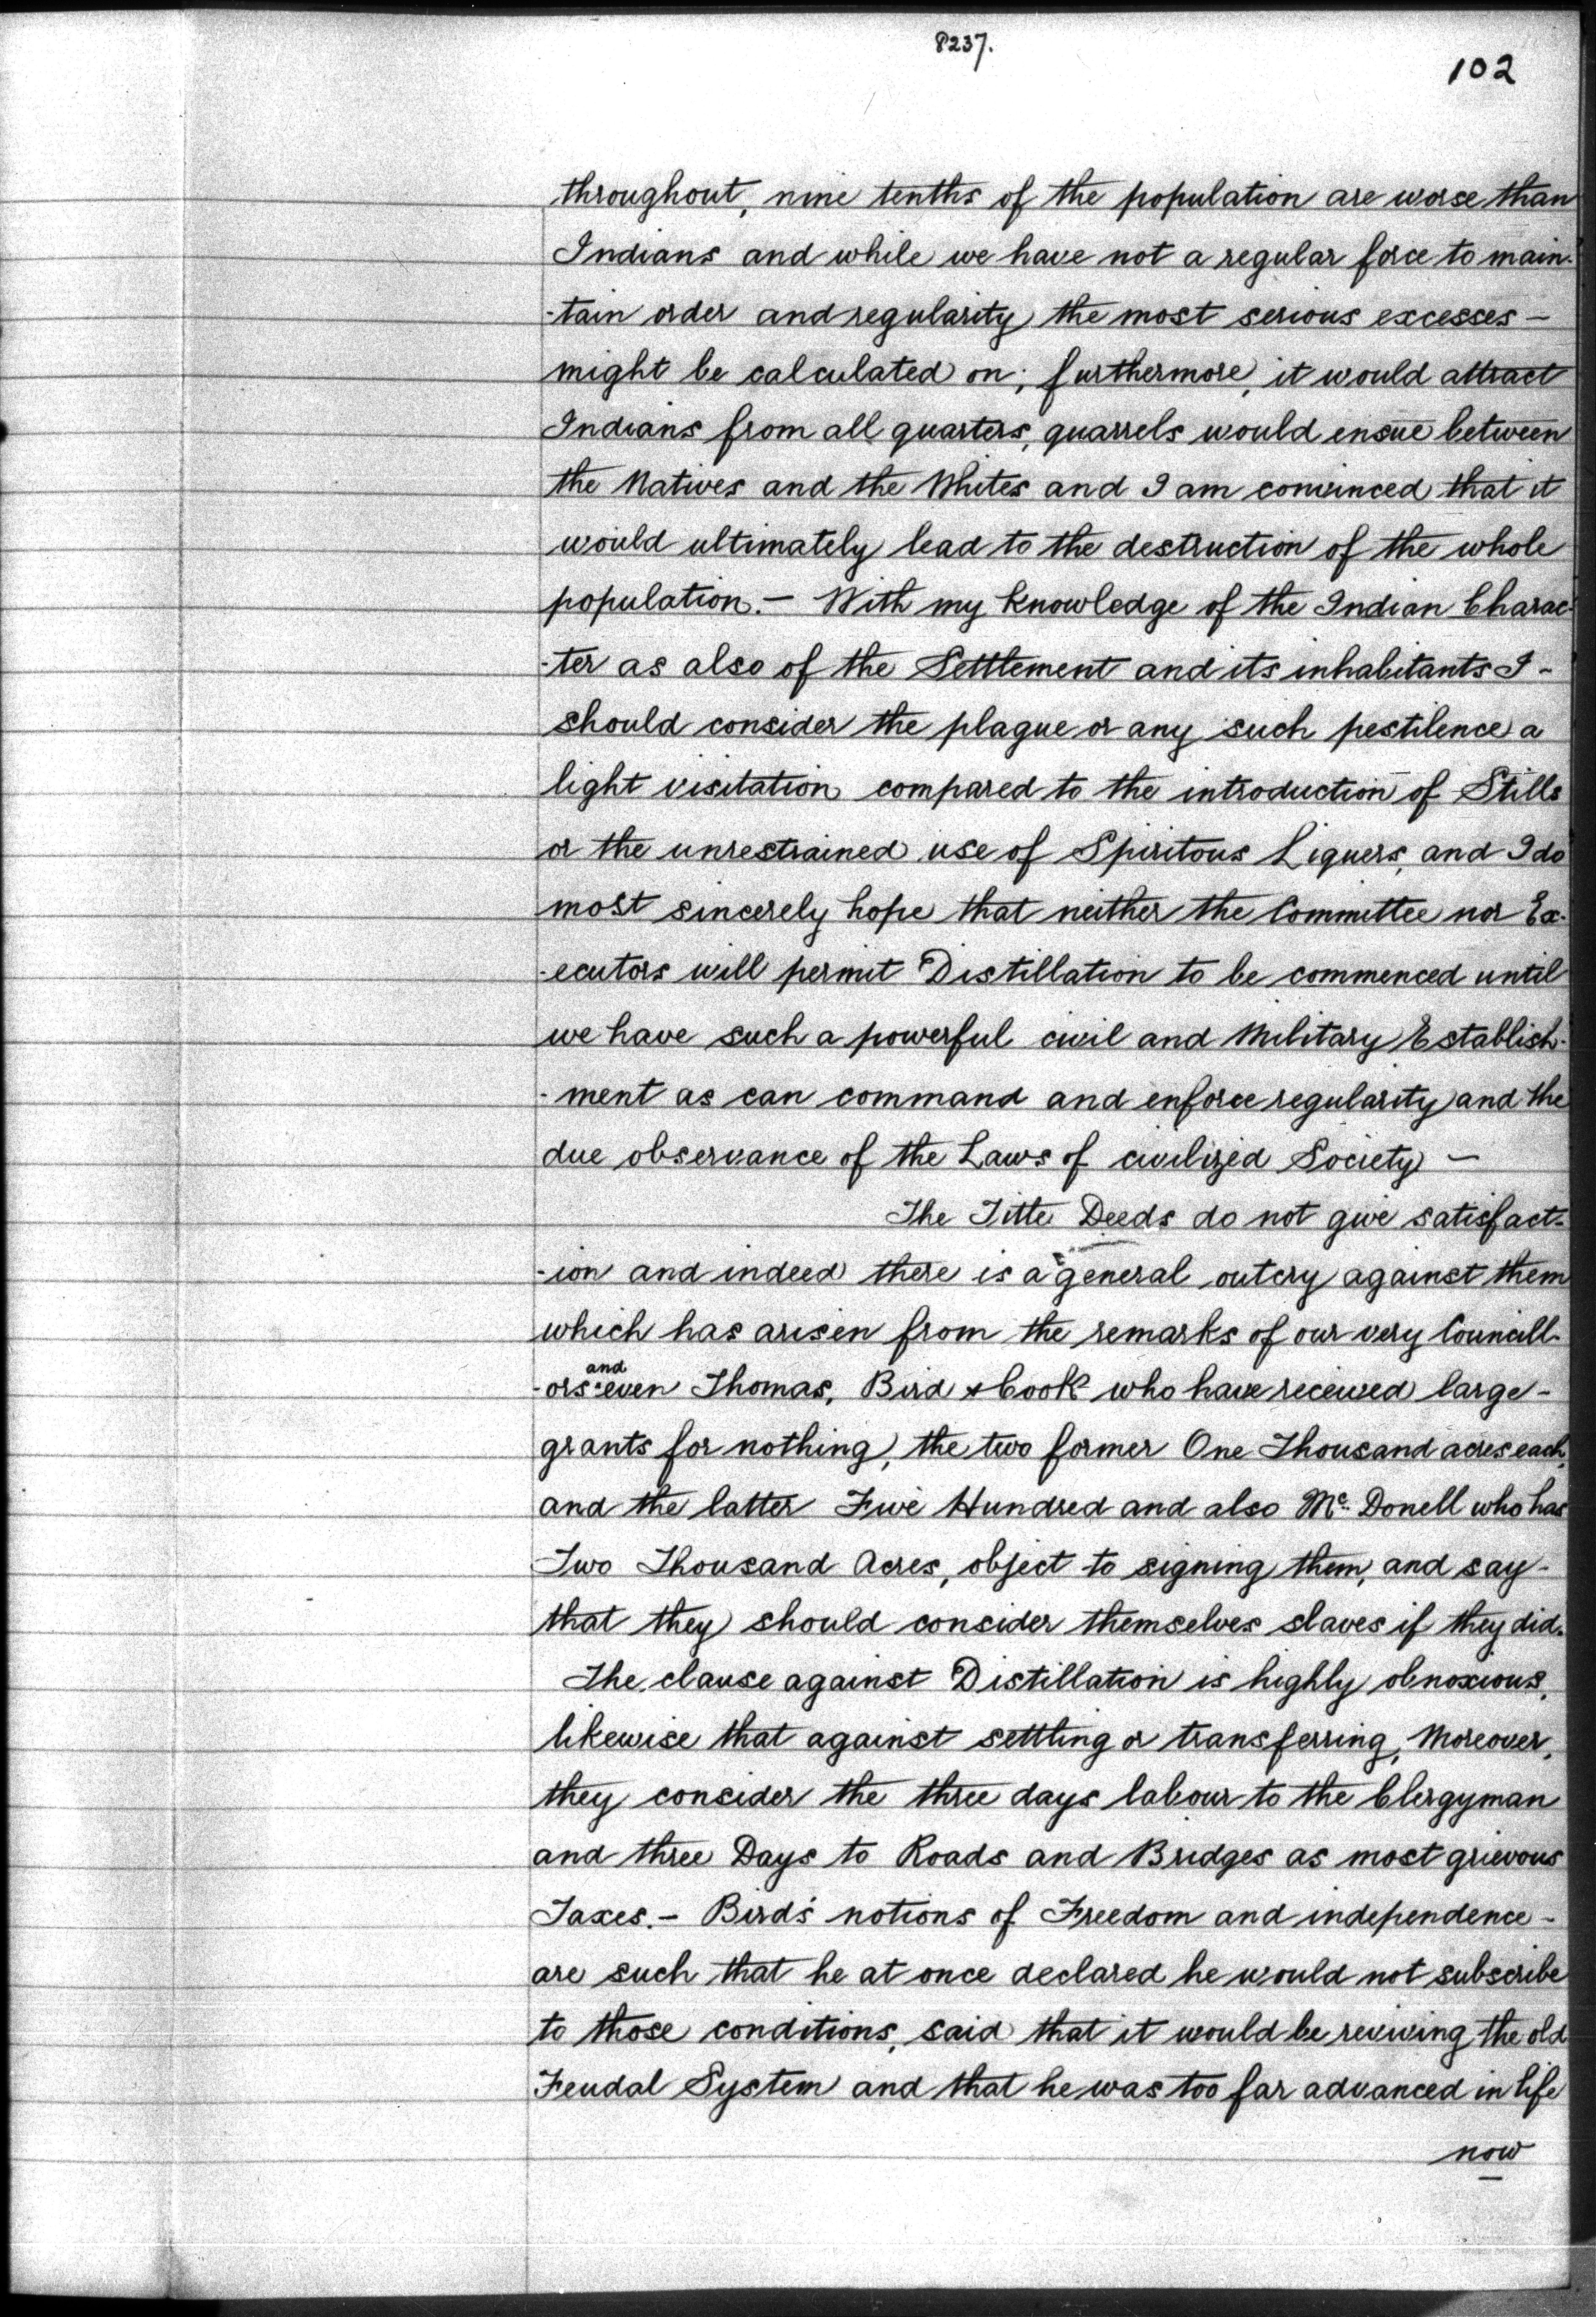 8237.
102
throughout, nine tenths of the population are worse than
Indians and while we have not a regular force to main-
-tain order and regularity the most serious excesses –
might be calculated on; furthermore, it would attract
Indians from all quarters, quarrels would ensue between
the Natives and the Whites and I am convinced that it
would ultimately lead to the destruction of the whole
population. – With my knowledge of the Indian Charac-
-ter as also of the Settlement and its inhabitants I –
should consider the plague or any such pestilence a
light visitation compared to the introduction of Stills
or the unrestrained use of Spiritous Liquers, and I do
most sincerely hope that neither the Committee nor Ex-
-ecutors will permit Distillation to be commenced until
we have such a powerful civil and Military Establish-
-ment as can command and enforce regularity and the
due observance of the Laws of civilized Society –
The Title Deeds do not give satisfact-
-ion and indeed there is a general outcry against them
which has arisen from the remarks of our very Councill-
and
-ors even Thomas, Bird & Cook who have received large –
grants for nothing, the two former One Thousand acres each,
and the latter Five Hundred and also Mc. Donell who has
Two Thousand Acres, object to signing them, and say –
that they should consider themselves slaves if they did.
The clause against Distillation is highly obnoxious,
likewise that against settling or transferring, Moreover,
they consider the three days labour to the Clergyman
and three Days to Roads and Bridges as most grievous
Taxes. – Bird's notions of Freedom and independence –
are such that he at once declared he would not subscribe
to those conditions, said that it would be reviving the old
Feudal System and that he was too far advanced in life
now